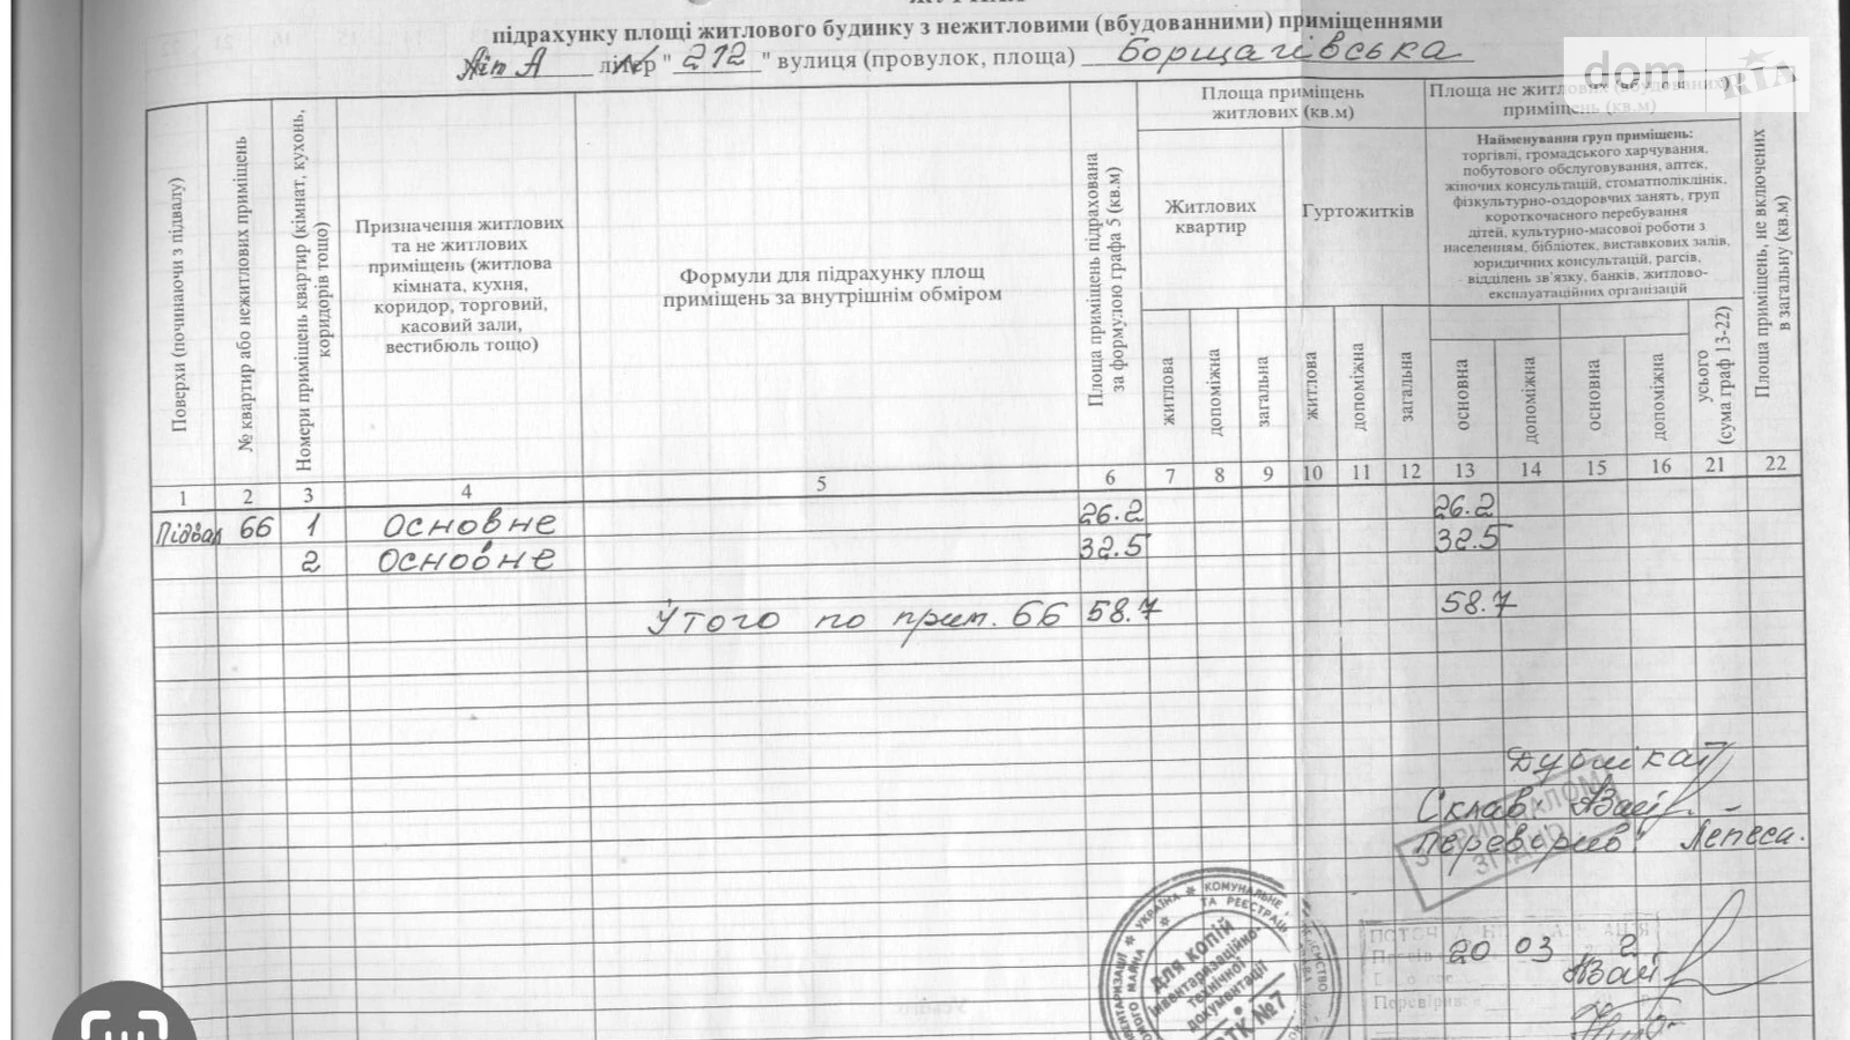 підрахунку площі житлового будинку з нежитловими (вбудованними) приміщеннями
Літ А літер "212" вулиця (провулок, площа) Борщагівська
dom RIA
Поверхи (починаючи з підвалу)
№ квартир або нежитлових приміщень
Номери приміщень квартир (кімнат, кухонь,
коридорів тощо)
Призначення житлових
та не житлових
приміщень (житлова
кімната, кухня,
коридор, торговий,
касовий зали,
вестибюль тощо)
Формули для підрахунку площ
приміщень за внутрішнім обміром
Площа приміщень підрахована
за формулою графа 5 (кв.м)
Площа приміщень
житлових (кв.м)
Житлових
квартир
Гуртожитків
житлова
допоміжна
загальна
житлова
допоміжна
загальна
Площа не житлових (вбудованих)
приміщень (кв.м)
Найменування груп приміщень:
торгівлі, громадського харчування,
побутового обслуговування, аптек,
жіночих консультацій, стоматполіклінік,
фізкультурно-оздоровчих занять, груп
короткочасного перебування
дітей, культурно-масової роботи з
населенням, бібліотек, виставкових залів,
юридичних консультацій, рагсів,
відділень зв'язку, банків, житлово-
експлуатаційних організацій
основна
допоміжна
основна
допоміжна
усього
(сума граф 13-22)
Площа приміщень, не включених
в загальну (кв.м)
1 2 3 4 5 6 7 8 9 10 11 12 13 14 15 16 21 22
Підвал 66 1 основне 26.2 26.2
2 основне 32.5 32.5
Утого по прим. 66 58.7 58.7
Склав:
Перевірив:
ЗГІДНО
УКРАЇНА * КОМУНАЛЬНЕ
ТА РЕЄСТРАЦ
Для копій
інвентаризаційно-
технічної
документації
№7
20 03 2
Перевірив: